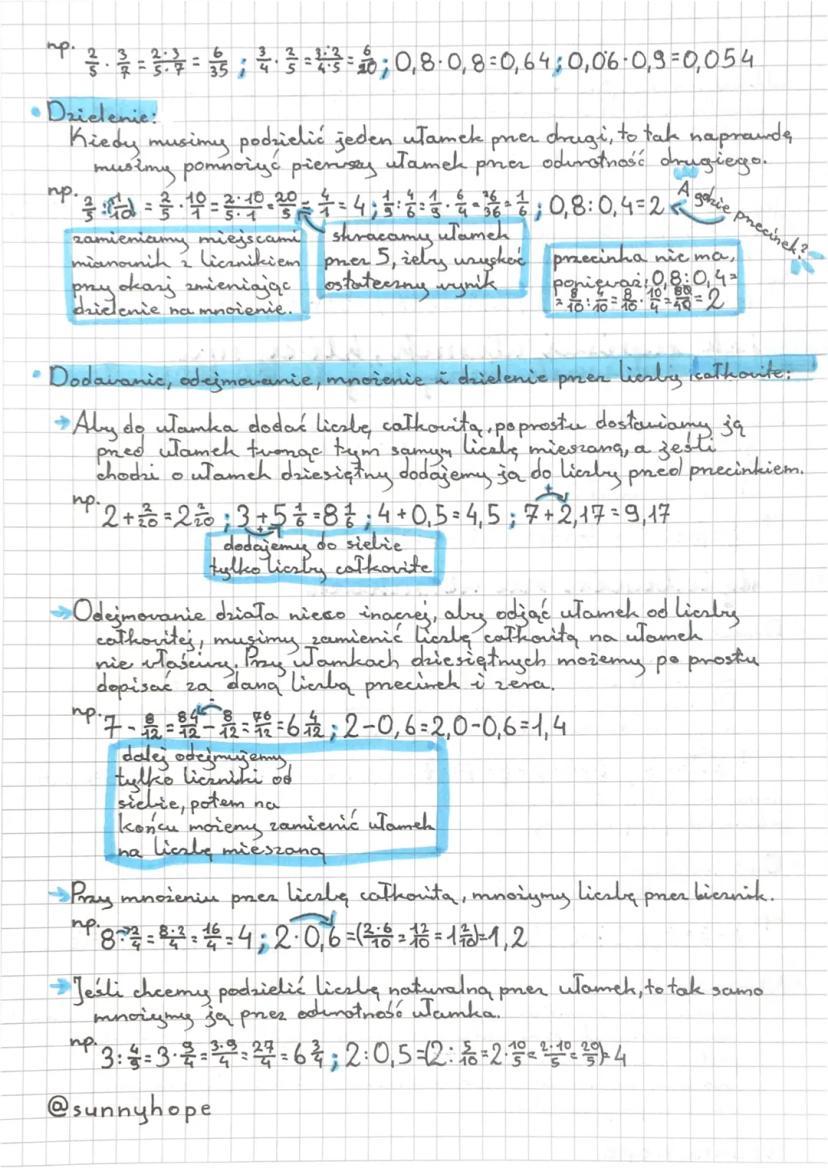 np. 2/5 · 3/7 = 2·3/5·7 = 6/35 ; 3/4 · 2/5 = 3·2/4·5 = 6/20 ; 0,8·0,8=0,64 ; 0,06·0,9=0,054
• Dzielenie:
Kiedy musimy podzielić jeden ułamek przez drugi, to tak naprawdę
musimy pomnożyć pierwszy ułamek przez odwrotność drugiego.
np. 2/5 : (1/10) = 2/5 · 10/1 = 2·10/5·1 = 20/5 = 4/1 = 4 ; 1/9 : 4/6 = 1/9 · 6/4 = 6/36 = 1/6 ; 0,8:0,4=2
A gdzie przecinek?
zamieniamy miejscami
mianownik z licznikiem
przy okazji zmieniając
dzielenie na mnożenie.
skracamy ułamek
przez 5, żeby uzyskać
ostateczny wynik
przecinka nie ma,
ponieważ: 0,8:0,4=
= 8/10 : 4/10 = 8/10 · 10/4 = 80/40 = 2
• Dodawanie, odejmowanie, mnożenie i dzielenie przez liczby całkowite:
→ Aby do ułamka dodać liczbę całkowitą, po prostu dostawiamy ją
przed ułamek tworząc tym samym liczbę mieszaną, a jeśli
chodzi o ułamek dziesiętny dodajemy ją do liczby przed przecinkiem.
np. 2+ 3/20 = 2 3/20 ; 3+5 1/6 = 8 1/6 ; 4+0,5=4,5 ; 7+2,17=9,17
+
+
dodajemy do siebie
tylko liczby całkowite
→ Odejmowanie działa nieco inaczej, aby odjąć ułamek od liczby
całkowitej, musimy zamienić liczbę całkowitą na ułamek
nie właściwy. Przy ułamkach dziesiętnych możemy po prostu
dopisać za daną liczbą przecinek i zera.
np. 7 - 8/12 = 84/12 - 8/12 = 76/12 = 6 4/12 ; 2-0,6=2,0-0,6=1,4
dalej odejmujemy
tylko liczniki od
siebie, potem na
końcu możemy zamienić ułamek
na liczbę mieszaną
→ Przy mnożeniu przez liczbę całkowitą, mnożymy liczbę przez licznik.
np. 8 · 2/4 = 8·2/4 = 16/4 = 4 ; 2·0,6 =(2·6/10 = 12/10 = 1 2/10)=1,2
→ Jeśli chcemy podzielić liczbę naturalną przez ułamek, to tak samo
mnożymy ją przez odwrotność ułamka.
np. 3 : 4/9 = 3 · 9/4 = 3·9/4 = 27/4 = 6 3/4 ; 2:0,5=(2 : 5/10 = 2 · 10/5 = 2·10/5 = 20/5)=4
@sunnyhope